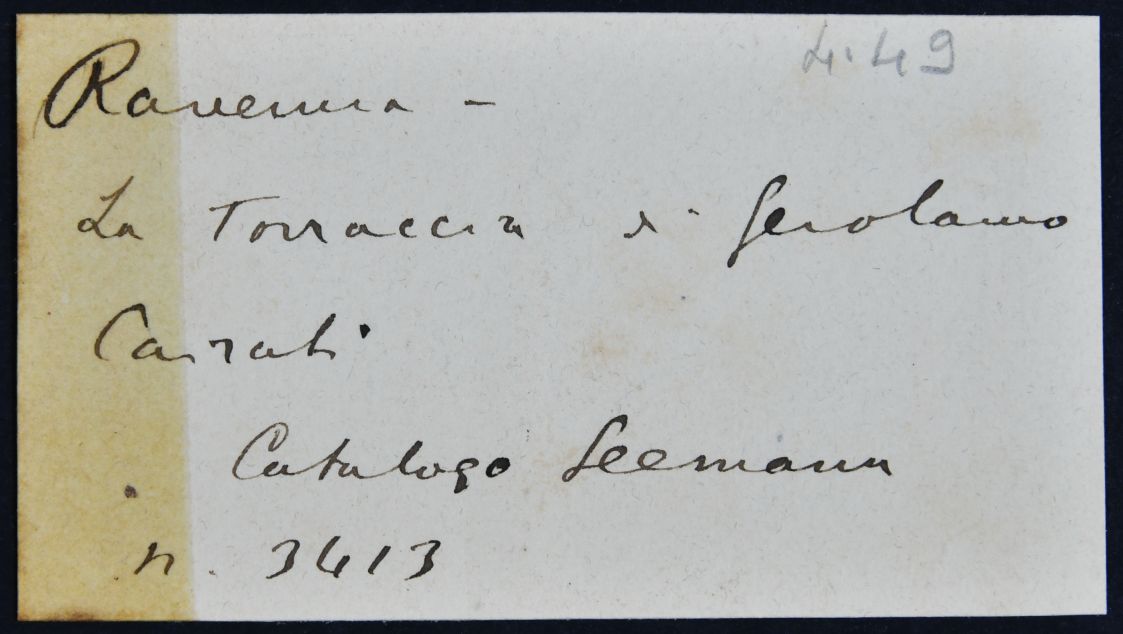 4.49
Ravenna -
La Torraccia di Gerolamo
Cairati
Catalogo Seemann
n. 3413